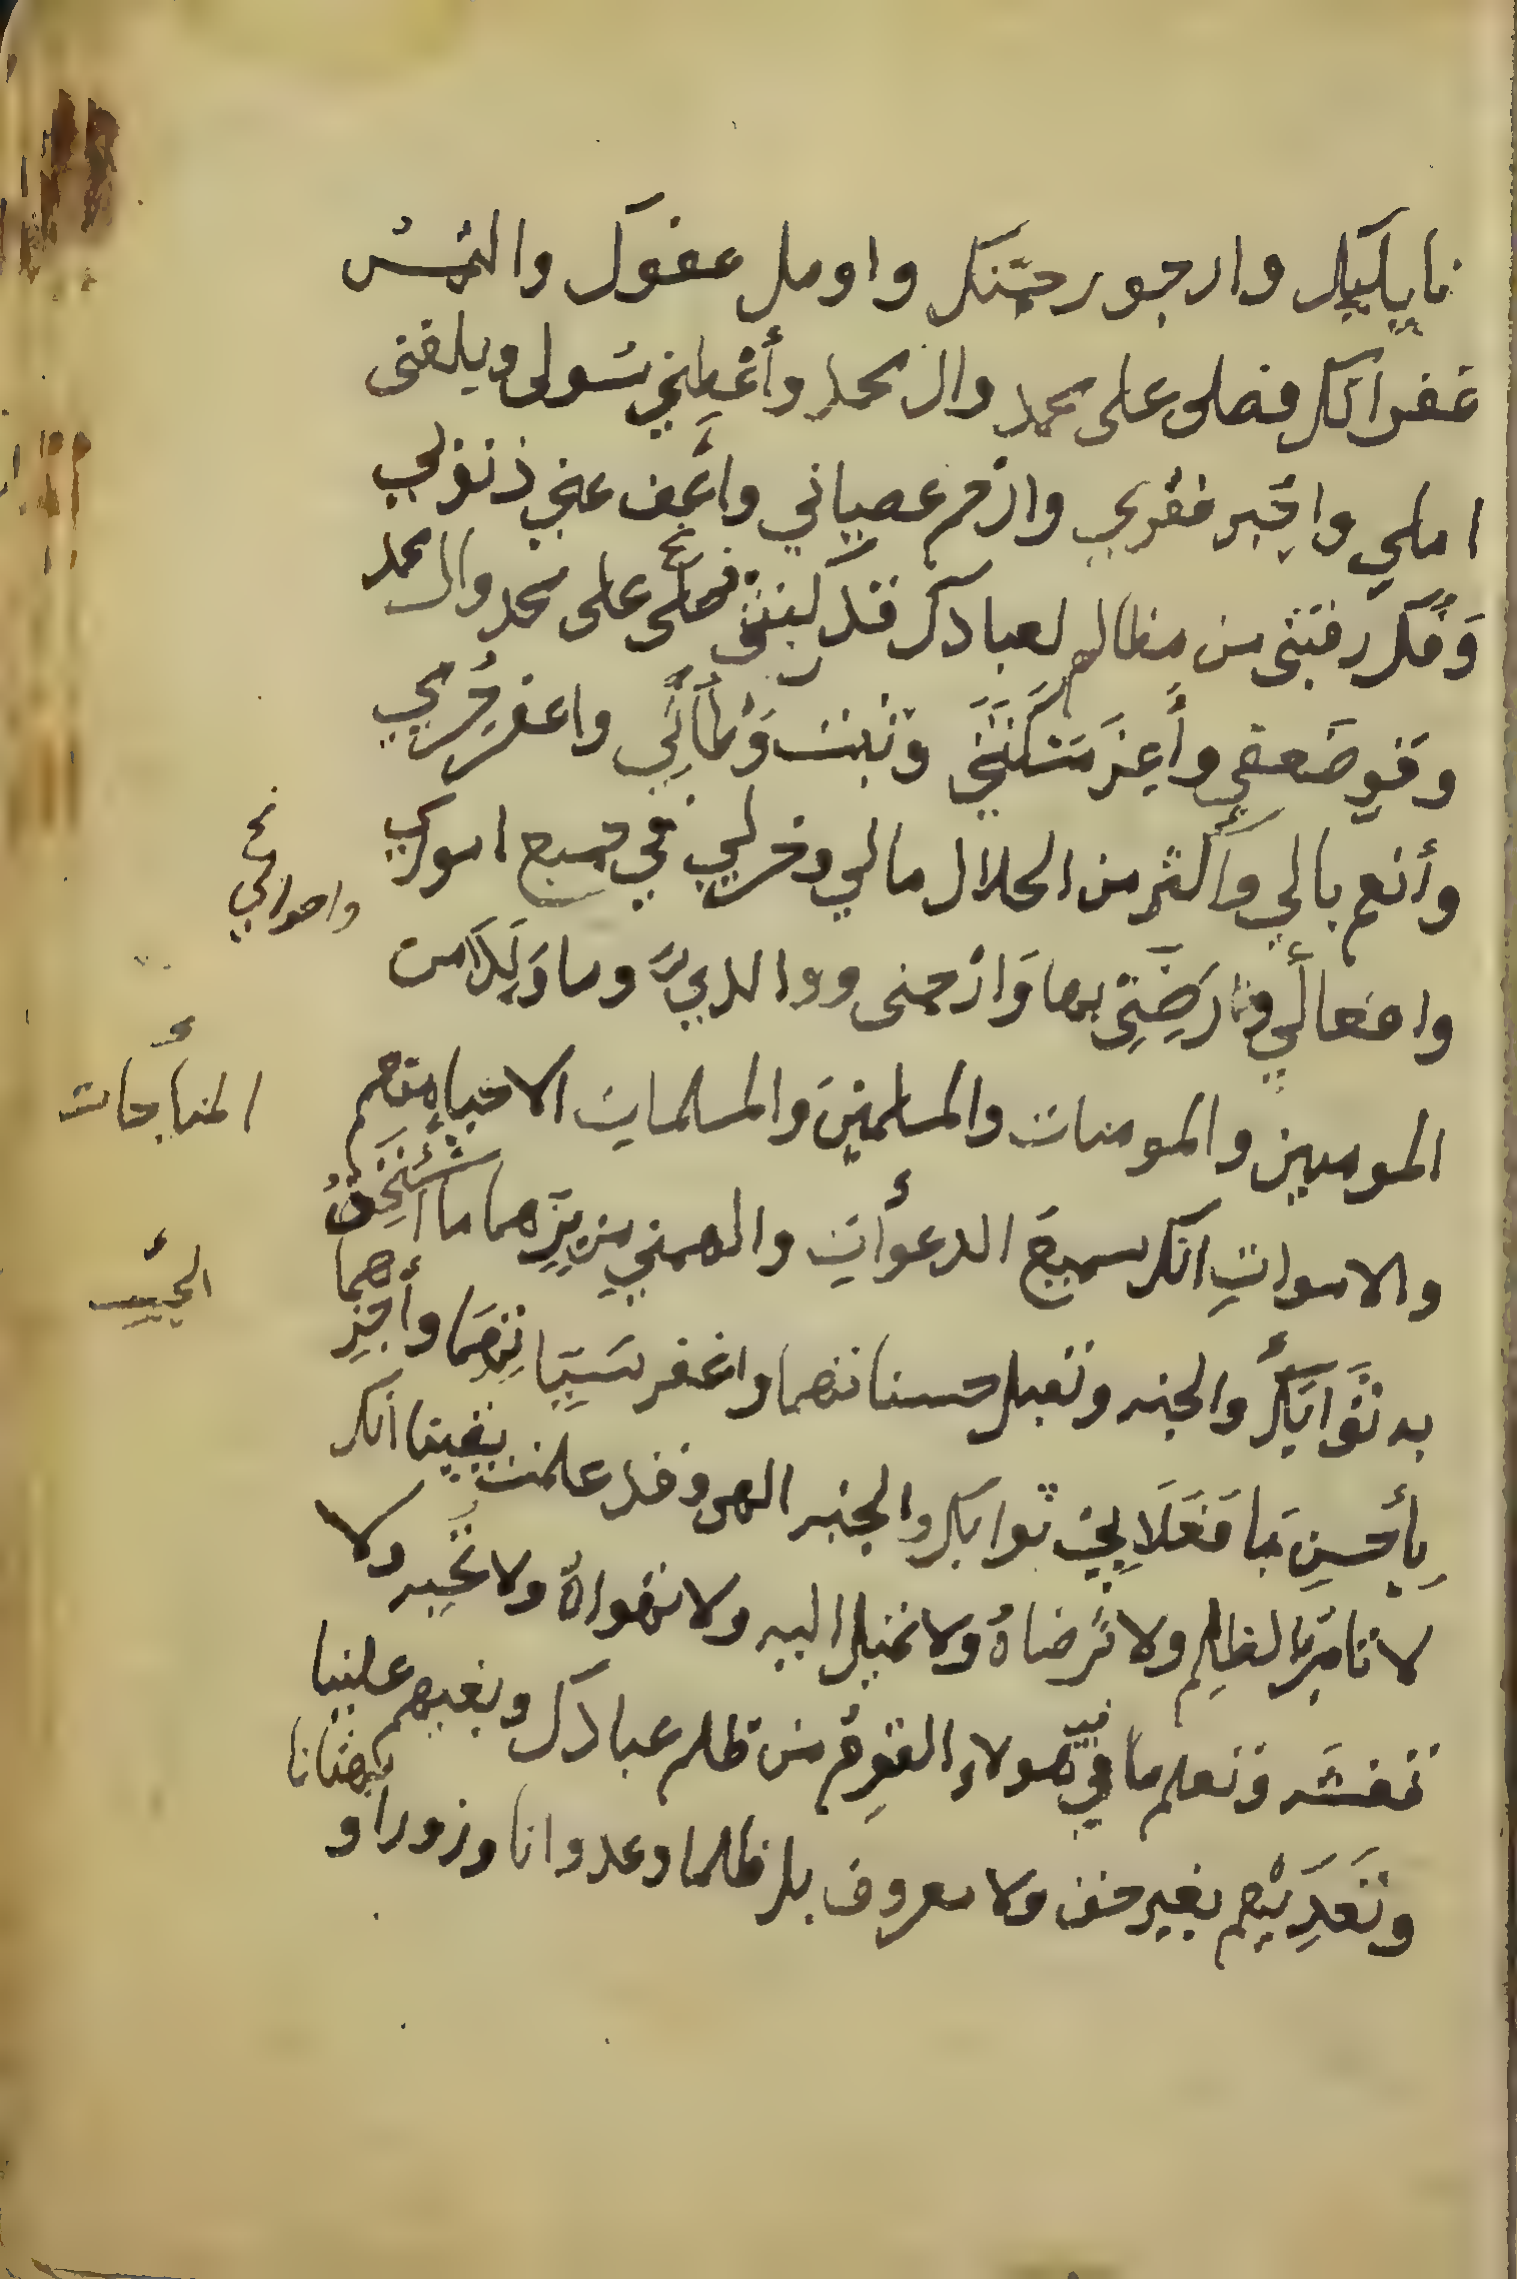 نايليك وارجو رحمتك واومل عفوك والتمس
غفرانك فصلى على محمد وال محمد وأعطني سولى وبلغنى
املي واجبر فقري وارحم عصياني واعف عني ذنوبي
وفك رقبتى من مظالم لعبادك قد ركبتنى فصلى على محمد وال محمد
وقوِ ضعفي وأعز مسكنتي وثبت وطأتي واغفر جرمي
وأنعم بالي وأكثر من الحلال مالي وخر لي في جميع اموري
وافعالي ورضني بها وارحمنى ووالدي وما ولدا من
المومنين والمومنات والمسلمين والمسلمات الاحياء منهم
والاموات انك سميع الدعوات والهمني من برهما ما استحق
به ثوابك والجنه وتقبل حسناتهما واغفر سيئاتهما وأجزهما
بأحسن ما فعلا بي ثوابك والجنه الهى وقد علمت يقينا انك
لا تامر بالظلم ولا ترضاه ولا تميل اليه ولا تهواه ولا تحبه ولا
تغشه وتعلم ما فيه هولاء القوم من ظلم عبادك وبغيهم علينا
وتعديهم بغير حق ولا معروف بل ظلما وعدوانا وزورا و
بهتانا
واحوالي
المناجات
المجيب